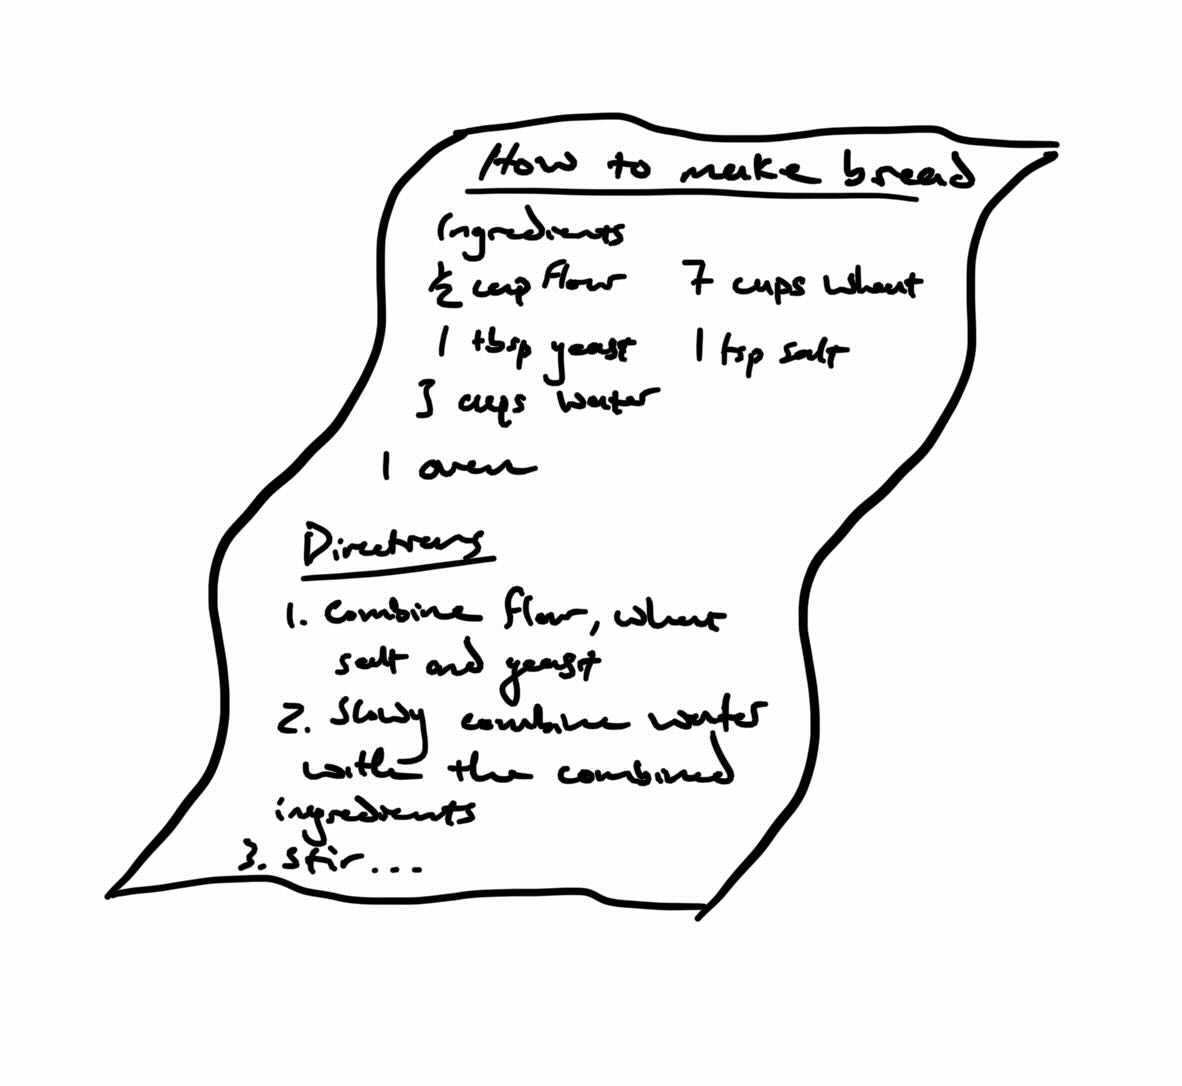 How to make bread
Ingredients
½ cup flour 7 cups wheat
1 tbsp yeast 1 tsp salt
3 cups water
1 oven
Directions
1. Combine flour, wheat
salt and yeast
2. Slowy combine water
with the combined
ingredients
3. Stir...